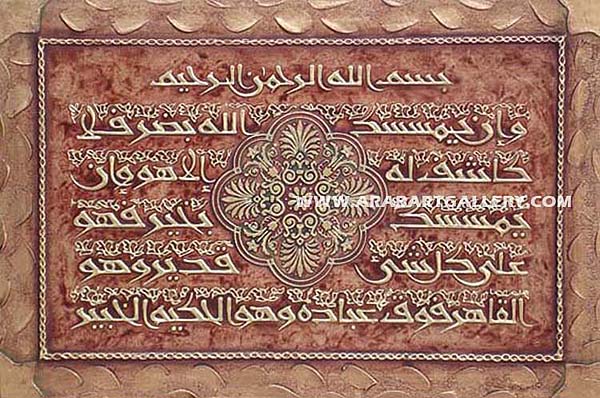 بسم الله الرحمن الرحيم
وإن يمسسك الله بضر فلا
كاشف له إلا هو وإن
يمسسك بخير فهو
على كل شئ قدير وهو
القاهر فوق عباده وهو الحكيم الخبير
WWW.ARABARTGALLERY.COM